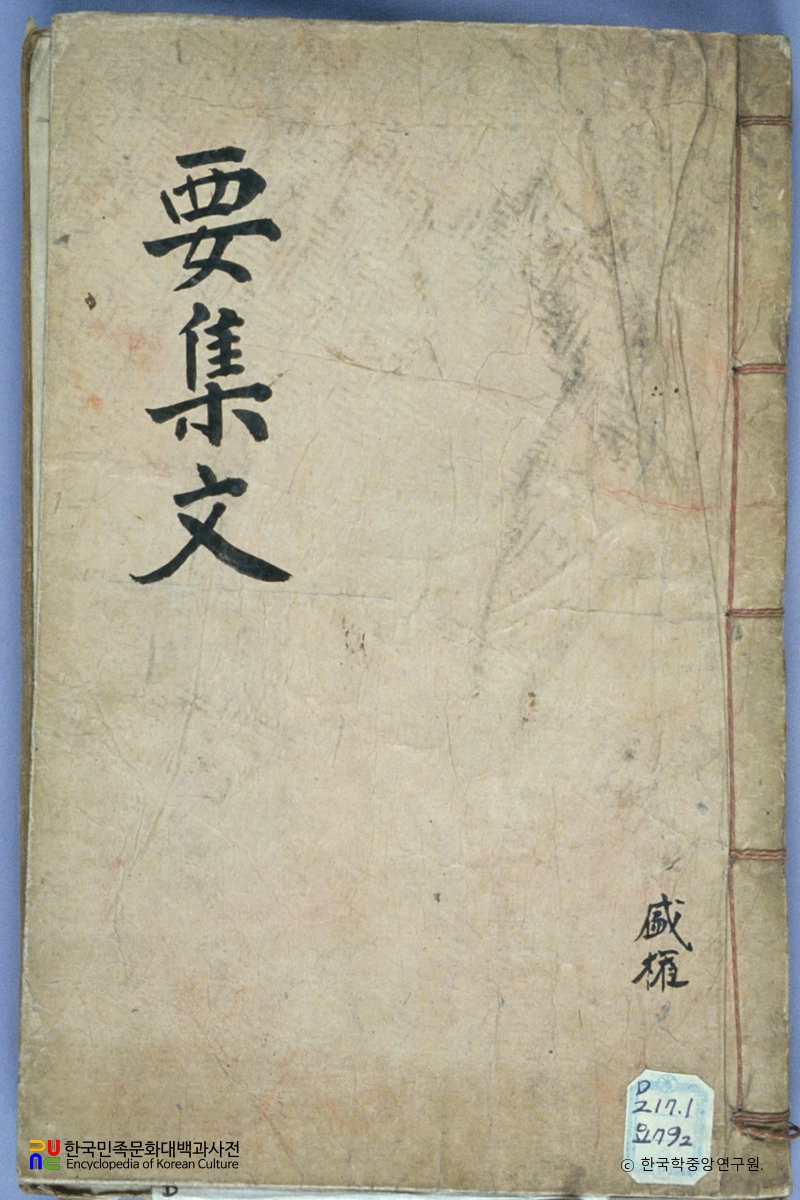 要集文
盛權
D
217.1
요792
한국민족문화대백과사전
Encyclopedia of Korean Culture
© 한국학중앙연구원.